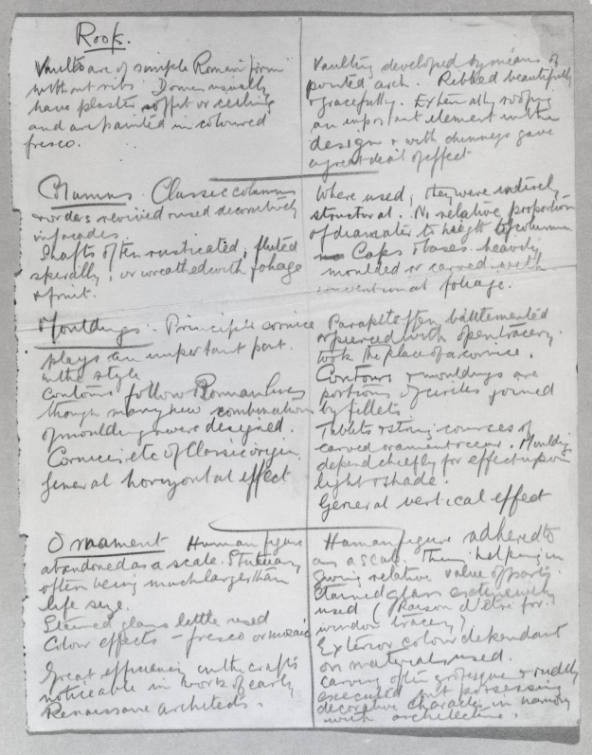 Roof.
Vaults are of simple Roman form
without ribs. Domes usually
have plaster soffit or ceiling
and are painted in coloured
fresco.
Columns. Classic columns
orders revived & used decoratively
in facades.
Shafts often rusticated, fluted
spirally, or wreathed with foliage
& fruit.
Mouldings. Principle cornice
plays an important part.
in the style
Contours follow Roman lines
though many new combinations
of mouldings were designed.
Cornices etc of Classic origin.
General horizontal effect
Ornament Human figure
abandoned as a scale. Statuary
often being much larger than
life size.
Stained glass little used
Colour effects – fresco or mosaic
Great efficiency in the crafts
noticeable in work of early
Renaissance architects.
Vaulting developed by means of
pointed arch. Ribbed beautifully
& gracefully. Externally roofing
an important element in the
design & with chimneys gave
a great deal of effect
Where used, they were entirely
structural. No relative proportion
of diameter to height of column
Caps & bases heavily
moulded or carved with
conventional foliage.
Parapets often battlemented
or pierced with open tracery.
took the place of a cornice.
Contours & mouldings are
portions of circles joined
by fillets
Tablets & string courses of
carved ornament occur. Mouldings
depend chiefly for effect upon
light & shade.
General vertical effect
Human figure adhered to
as a scale. Thus helping in
giving relative value of parts.
Stained glass extensively
used (Raison d'être for
window tracery)
Exterior colour dependant
on materials used.
carving often grotesque & rudely
executed but possessing
decorative character in harmony
with architecture.